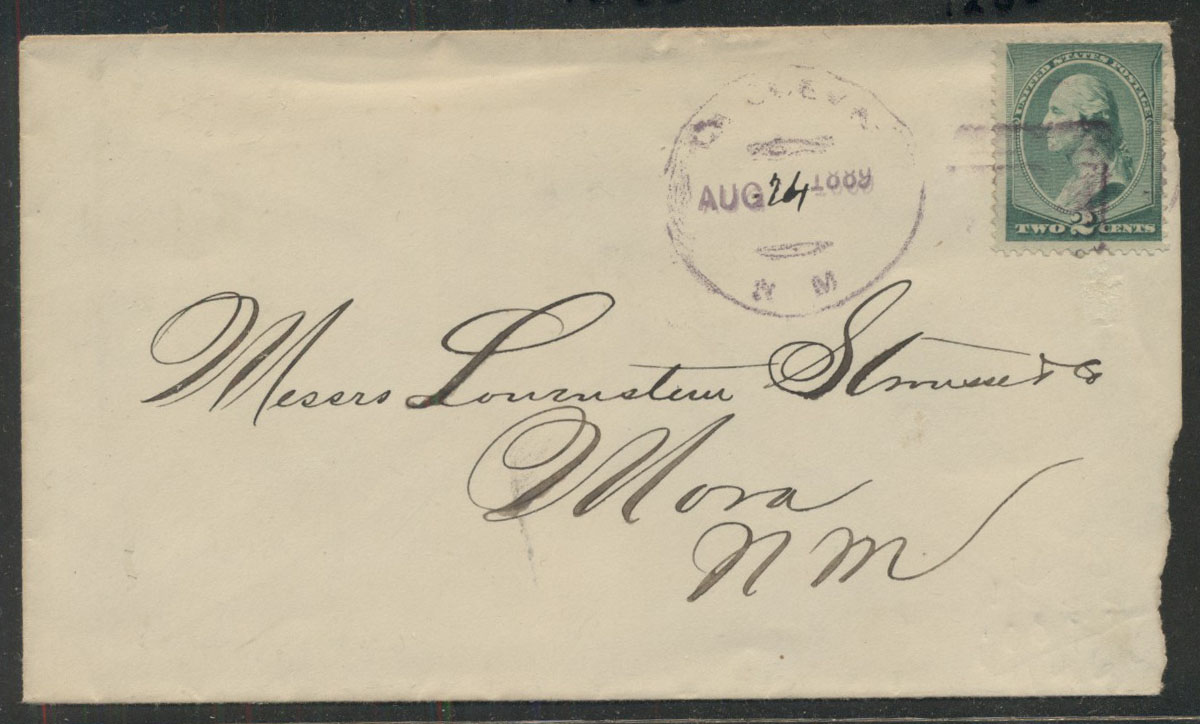 CUEVA
AUG 24 1889
N M
UNITED STATES POSTAGE
TWO 2 CENTS
Messrs Lowenstein Strousse & Co
Mora
N M